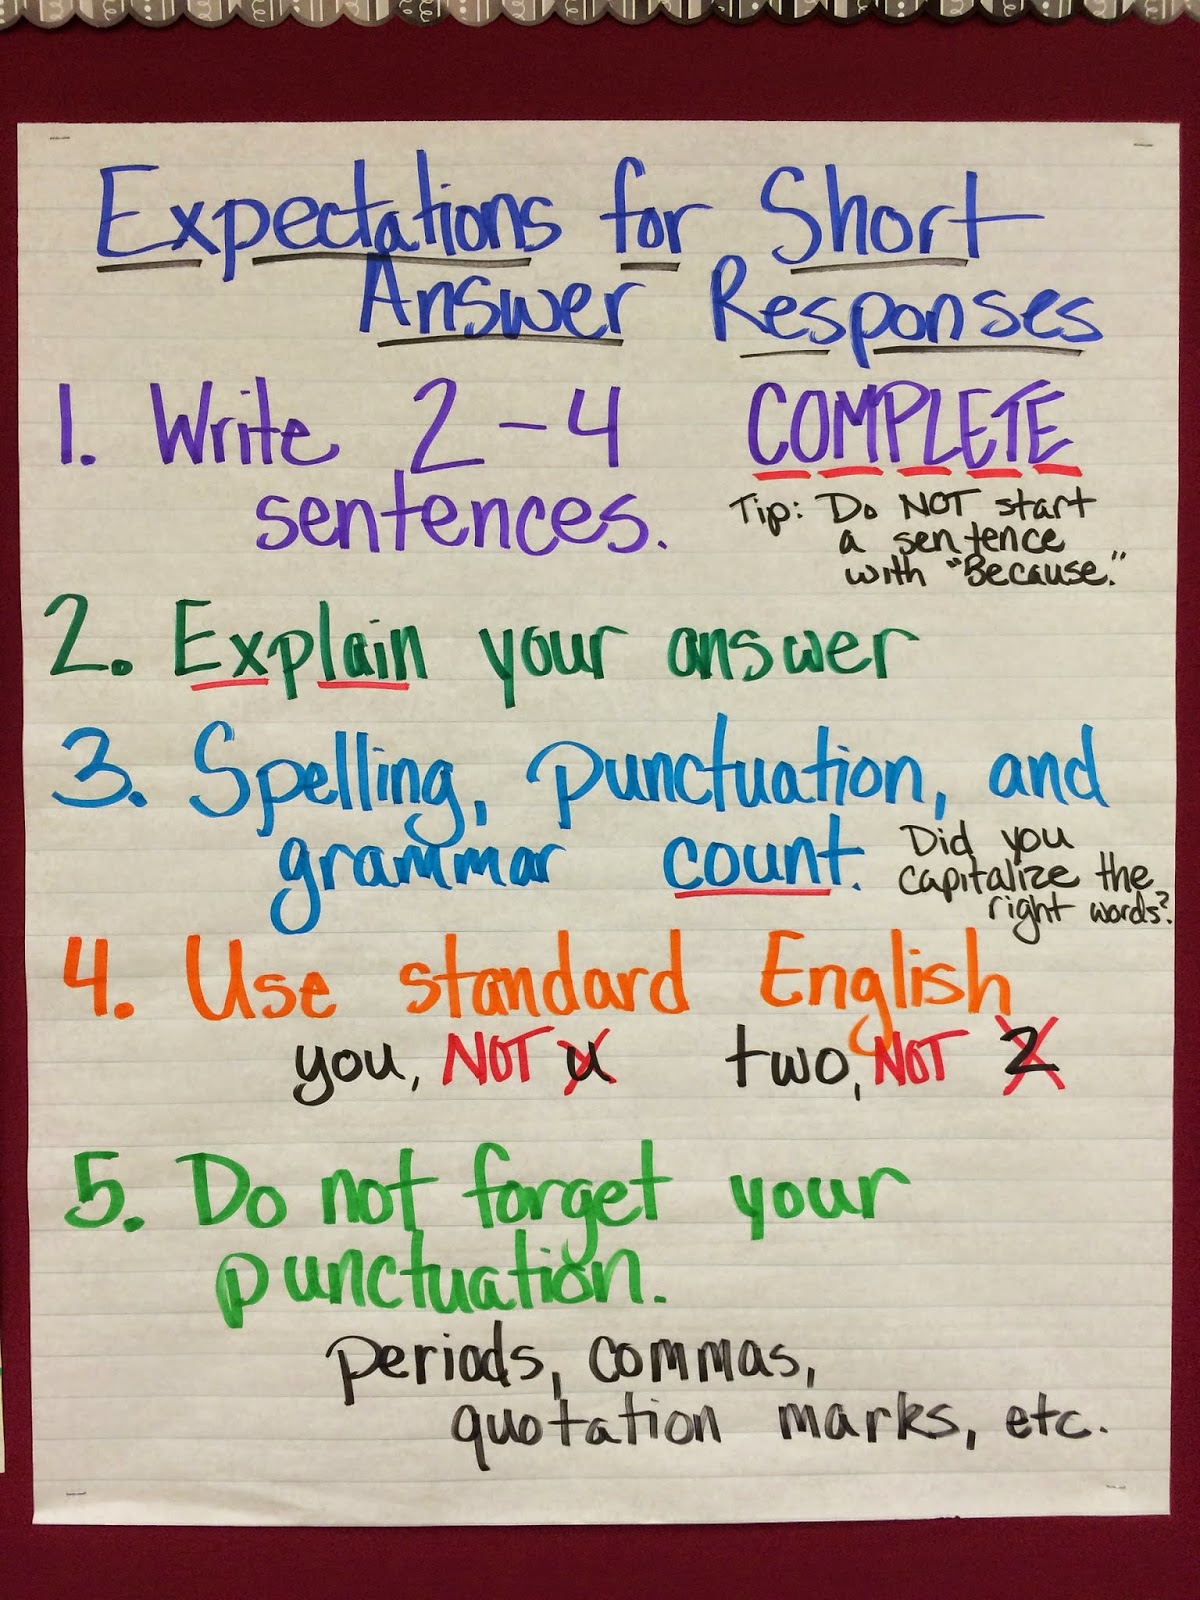 Expectations for Short
Answer Responses
1. Write 2-4 COMPLETE
sentences.
Tip: Do NOT start
a sentence
with "Because."
2. Explain your answer
3. Spelling, punctuation, and
grammar count.
Did you
capitalize the
right words?
4. Use standard English
you, NOT u two, NOT 2
5. Do not forget your
punctuation.
periods, commas,
quotation marks, etc.